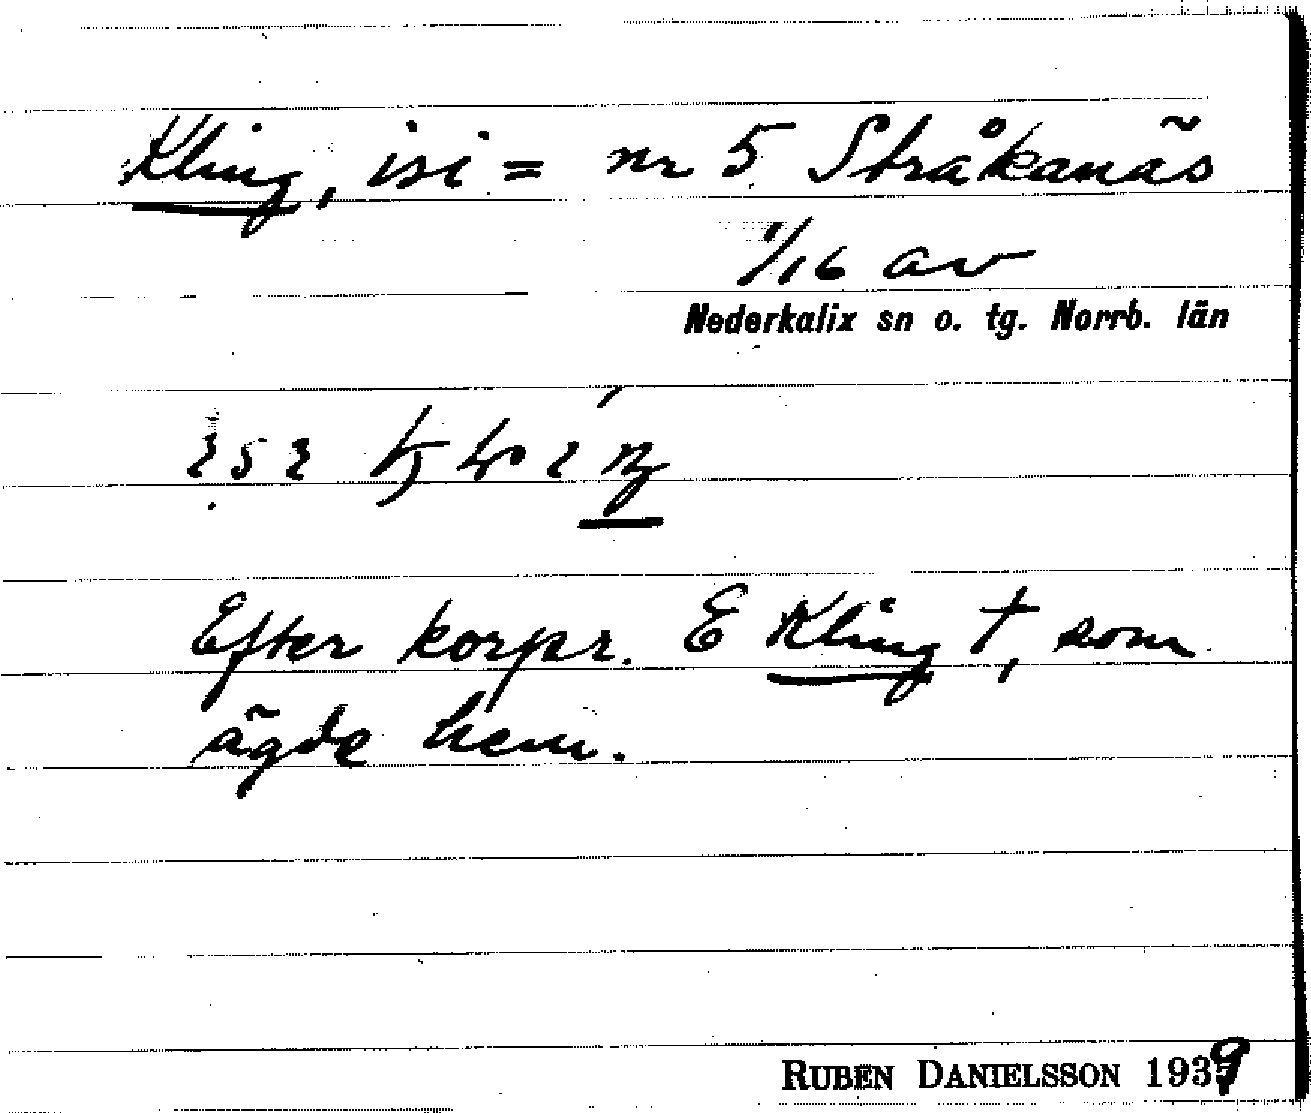 Kling, isi = nr 5 Stråkanäs
1/16 av
Nederkalix sn o. tg. Norrb. län
Efter korpr. E Kling †, som
ägde hem.
RUBEN DANIELSSON 1939